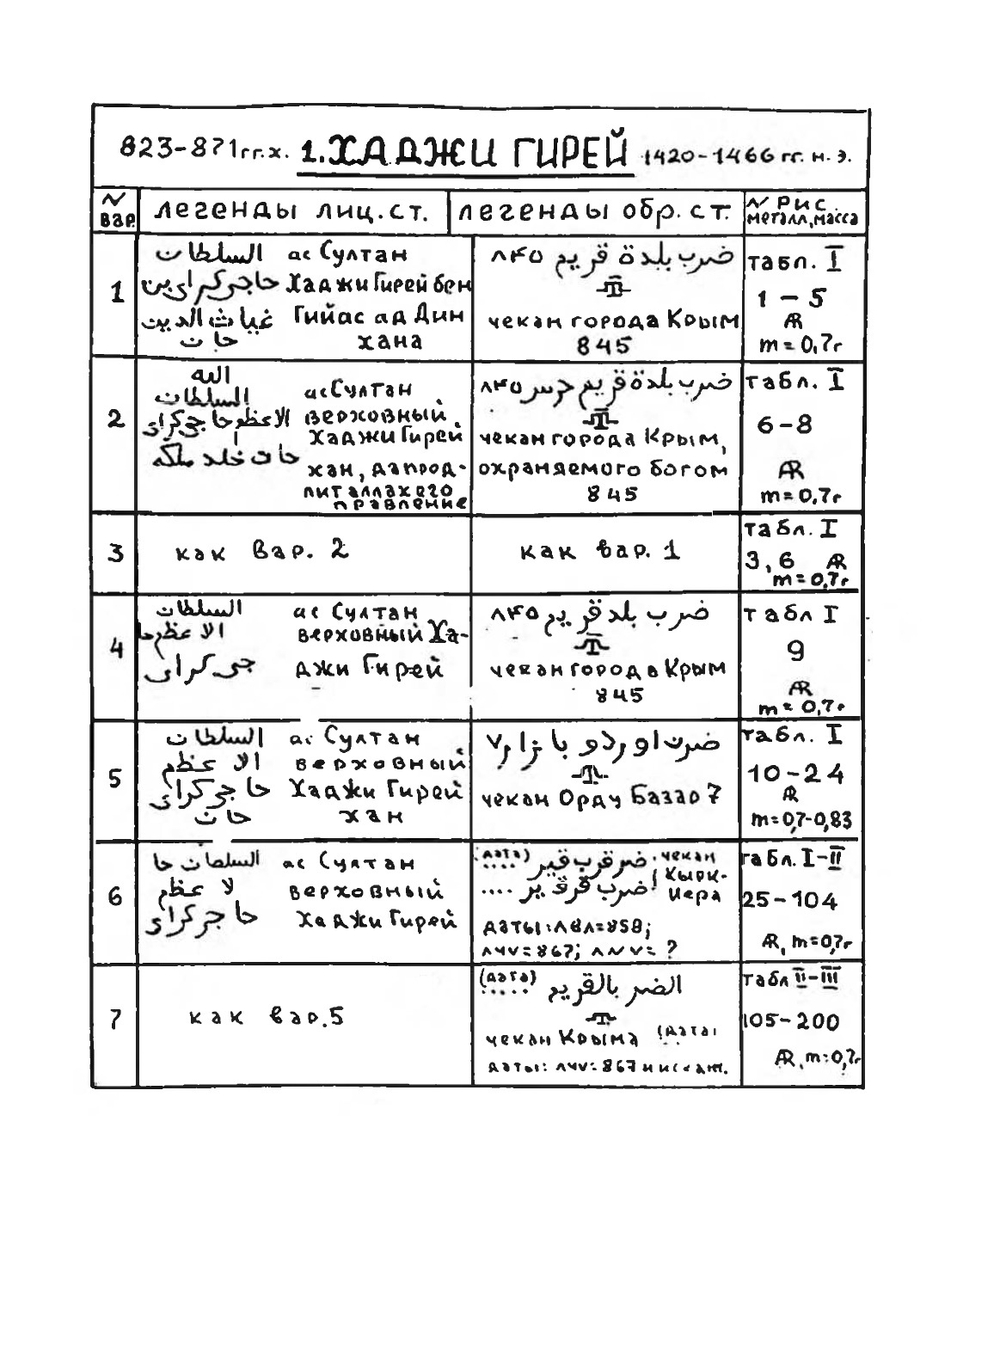 823-871гг.х. 1. ХАДЖИ ГИРЕЙ 1420-1466 гг. н. э.
№ вар. легенды лиц. ст. легенды обр. ст. № Рис. металл, масса
1
السلطان ас Султан
حاجى كراى بن Хаджи Гирей бен
غياث الدين Гийас ад Дин
خان хана
ضرب بلدة قريم ٨٤٥
чекан города Крым
845
табл. I
1 – 5
AR
m = 0,7г
2
الله
السلطان ас Султан
الاعظم حاجى كراى верховный
Хаджи Гирей
خان خلد ملكه хан, да прод-
лит аллах его
правление
ضرب بلدة قريم ٨٤٥
чекан города Крым,
охраняемого богом
845
табл. I
6-8
AR
m = 0,7г
3
как вар. 2
как вар. 1
табл. I
3, 6 AR
m = 0,7г
4
السلطان ас Султан
الاعظم حا верховный Ха-
جى كراى джи Гирей
ضرب بلد قريم ٨٤٥
чекан города Крым
845
табл I
9
AR
m = 0,7г
5
السلطان ас Султан
الاعظم верховный
حاجى كراى Хаджи Гирей
خان хан
ضرب اوردو بازار ٧
чекан Орду Базар 7
табл. I
10-24
AR
m=0,7-0,83
6
السلطان ас Султан
لاعظم верховный
حاجى كراى Хаджи Гирей
(дата) .... ضرب قرقير чекан
.... ضرب قرقير Кырк-
иера
даты: ٨٥٨=858;
٨٦٧=867; = ?
табл. I-II
25-104
AR, m=0,7г
7
как вар. 5
(дата) ..... الضرب بالقريم
чекан Крыма (дата)
даты: ٨٦٧=867
табл II-III
105-200
AR, m=0,7г